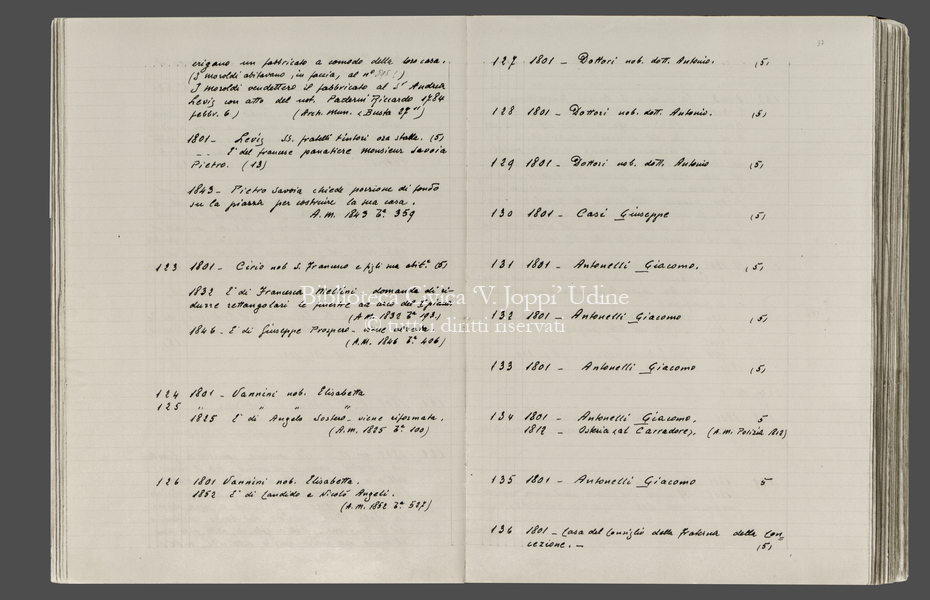 erigono un fabbricato a comodo delle loro case.
(I moroldi abitavano, in faccia, al n°
I moroldi vendettero il fabbricato al Sr Andrea
Leviz con atto del not. Paderni Riccardo 1784
febbr. 6) (Arch. Mun. "Busta 27")
1801 - Leviz SS. fratelli tintori ora stalle. (5)
-- E' del francese panatiere monsieur Savoia
Pietro. (13)
1843 - Pietro Savoia chiede porzione di fondo
su la piazza per costruire la sua casa.
A.M. 1843 B.a 359
123 1801 - Cirio nob S. Francesco e figli sua abit.e (5)
1832 E' di Francesca Mellini domanda di ri-
durre rettangolari le finestre
(A.M. 1832 B.a 193)
1846 - E' di Giuseppe Prospero - viene
(A.M. 1846 B.a 406)
124 1801 - Vannini nob. Elisabetta
125 " " "
1825 E' di Angelo Sostero - viene riformata.
(A.M. 1825 B.a 100)
126 1801 Vannini nob. Elisabetta.
1852 E' di Candido e Nicolò Angeli.
(A.M. 1852 B.a 527)
37
127 1801 - Dottori nob. dott. Antonio. (5)
128 1801 - Dottori nob. dott. Antonio. (5)
129 1801 - Dottori nob. dott. Antonio (5)
130 1801 - Casi Giuseppe (5)
131 1801 - Antonelli Giacomo. (5)
132 1801 - Antonelli Giacomo (5)
133 1801 - Antonelli Giacomo (5)
134 1801 - Antonelli Giacomo. 5
1812 - Osteria "al Carradore", (A.M. Polizia 1812)
135 1801 - Antonelli Giacomo 5
136 1801 - Casa del Consiglio della Fraterna della Con=
cezione. - (5)
Biblioteca Civica 'V. Joppi' Udine
© tutti i diritti riservati